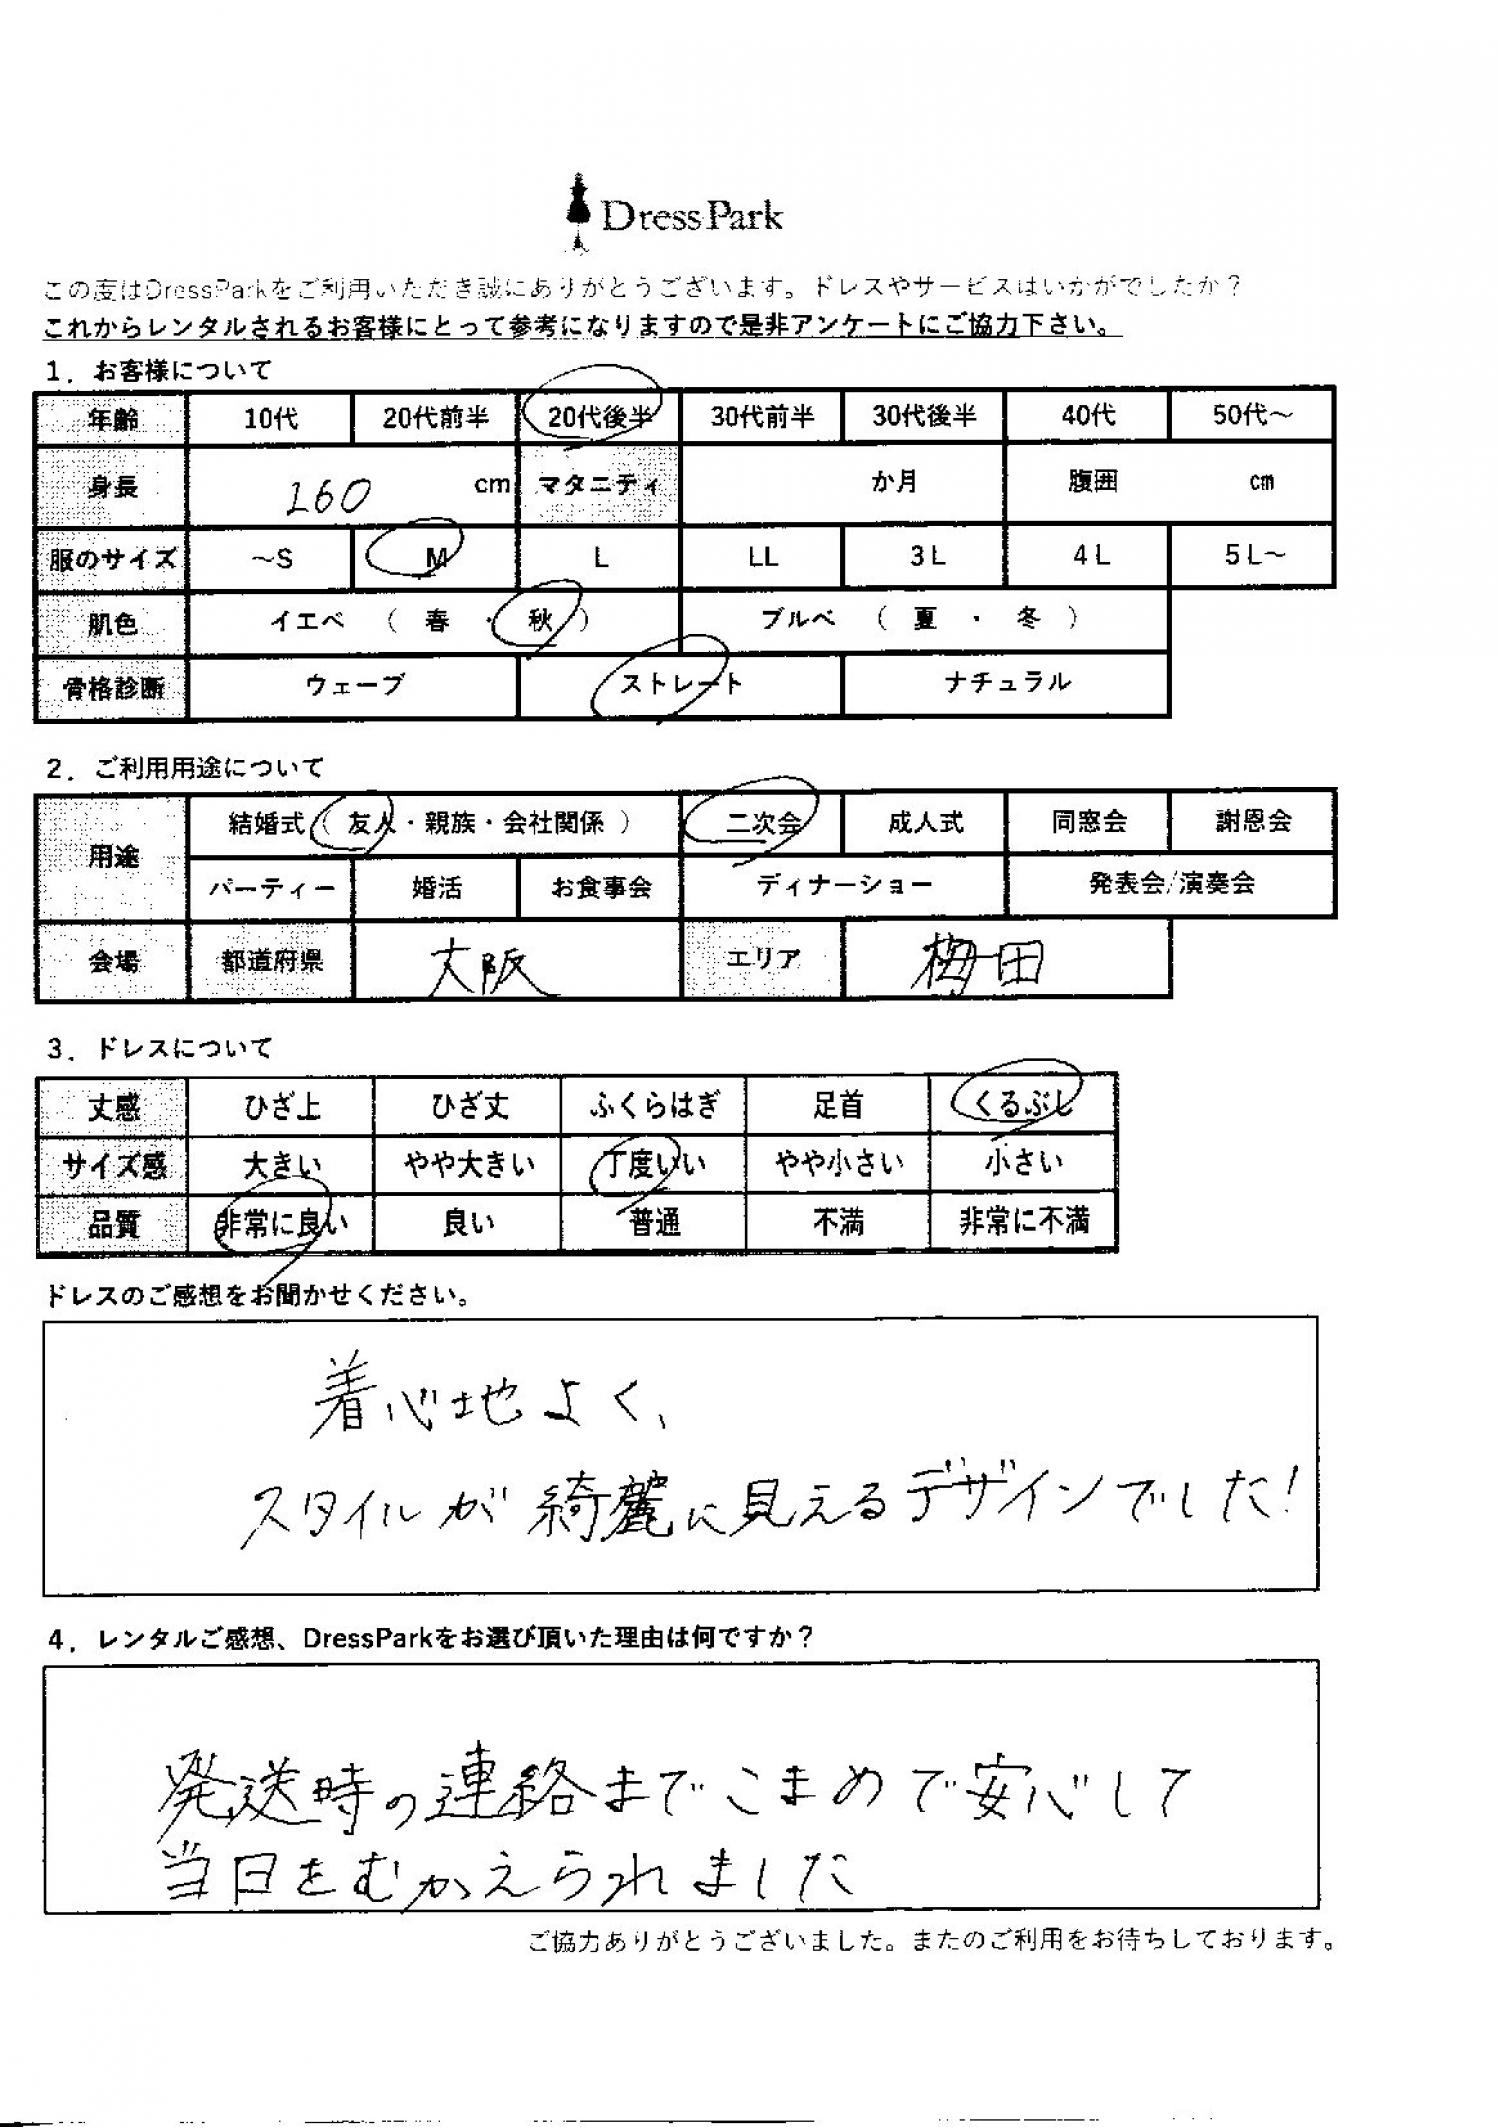 DressPark
この度はDressParkをご利用いただき誠にありがとうございます。ドレスやサービスはいかがでしたか？
これからレンタルされるお客様にとって参考になりますので是非アンケートにご協力下さい。
1．お客様について
年齢 10代 20代前半 20代後半 30代前半 30代後半 40代 50代～
身長 160 cm マタニティ か月 腹囲 cm
服のサイズ ～S M L LL 3L 4L 5L～
肌色 イエベ （ 春 ・ 秋 ） ブルベ （ 夏 ・ 冬 ）
骨格診断 ウェーブ ストレート ナチュラル
2．ご利用用途について
用途 結婚式（ 友人・親族・会社関係 ） 二次会 成人式 同窓会 謝恩会
パーティー 婚活 お食事会 ディナーショー 発表会/演奏会
会場 都道府県 大阪 エリア 梅田
3．ドレスについて
丈感 ひざ上 ひざ丈 ふくらはぎ 足首 くるぶし
サイズ感 大きい やや大きい 丁度いい やや小さい 小さい
品質 非常に良い 良い 普通 不満 非常に不満
ドレスのご感想をお聞かせください。
着心地よく、
スタイルが綺麗に見えるデザインでした！
4．レンタルご感想、DressParkをお選び頂いた理由は何ですか？
発送時の連絡までこまめで安心して
当日をむかえられました
ご協力ありがとうございました。またのご利用をお待ちしております。